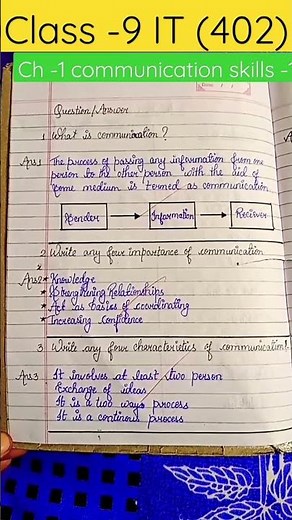 Class -9 IT (402)
Ch -1 communication skills -
Question/Answer
1 What is communication?
Ans1 The process of passing any information from one
person to the other person with the aid of
some medium is termed as communication.
Sender
Information
Receiver
2 Write any four importance of communication
Ans2 * Knowledge
* Strengthening Relationships
* Act as basics of coordinating
* Increasing Confidence
3 Write any four characteristics of communication!
Ans3 It involves at least two person
Exchange of ideas
It is a two ways process
It is a continous process